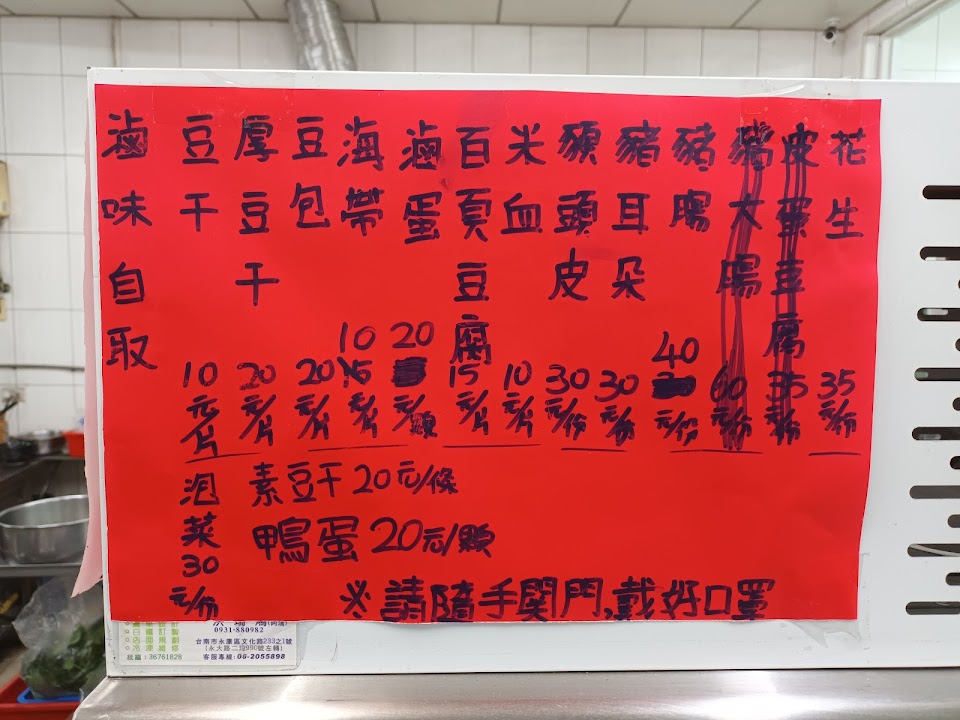 滷味自取
豆干 10元/片
厚豆干 20元/片
豆包 20元/片
海帶 10元/片
滷蛋 20元/顆
百頁豆腐 15元/片
米血 10元/片
頭頭皮 30元/份
豬耳朵 30元/份
豬腸 40元/份
豬大腸 60元/份
皮蛋豆腐 35元/份
花生 35元/份
泡菜 30元/份
素豆干 20元/條
鴨蛋 20元/顆
※請隨手関門,戴好口罩
0931-880982
台南市永康區文化路233之1號
(永大路二段990號左轉)
統編:36761828
客服專線:06-2055898